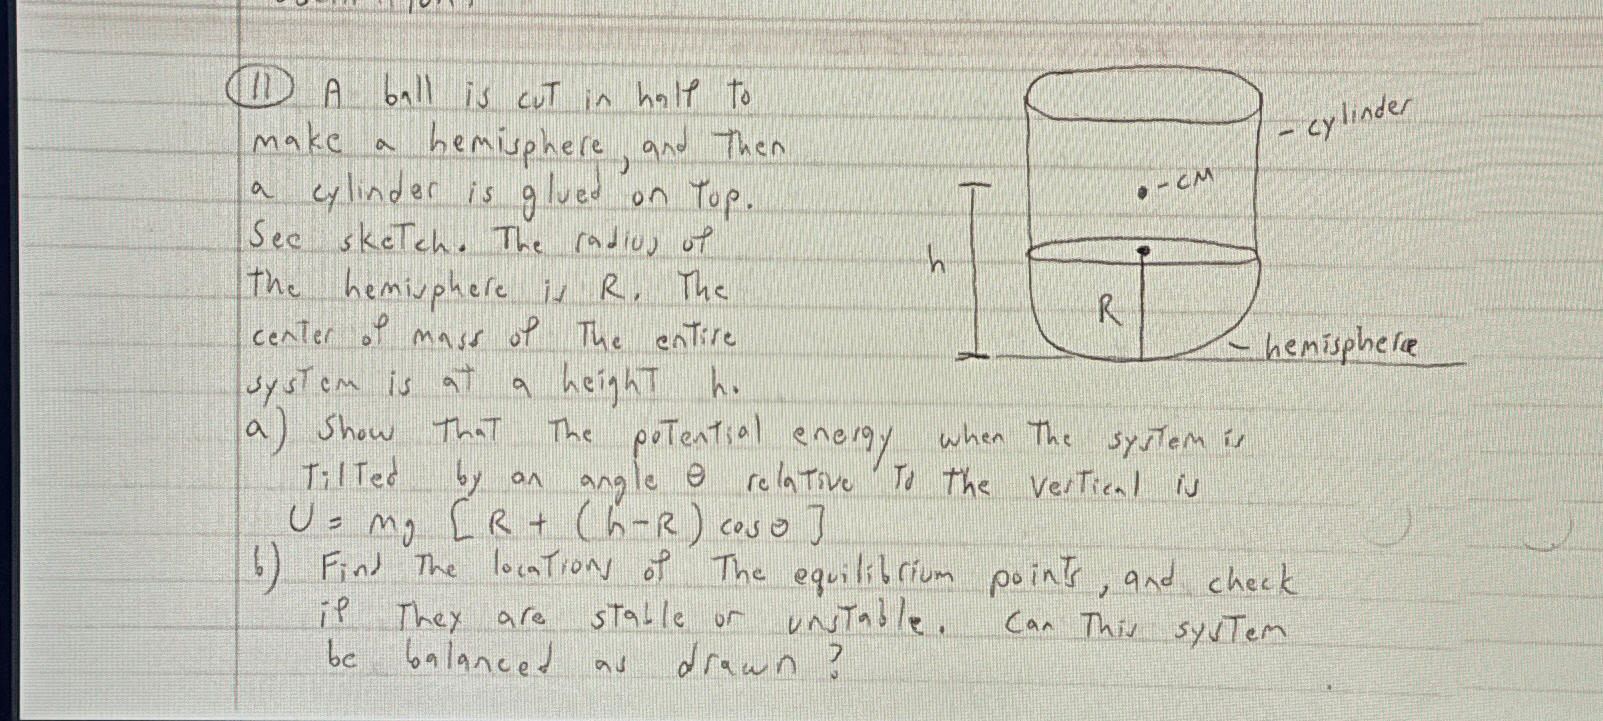 (11) A ball is cut in half to
make a hemisphere, and then
a cylinder is glued on top.
See sketch. The radius of
the hemisphere is R. The
center of mass of the entire
system is at a height h.
a) Show that the potential energy when the system is
tilted by an angle θ relative to the vertical is
U = mg [R + (h-R) cos θ]
b) Find the locations of the equilibrium points, and check
if they are stable or unstable. Can this system
be balanced as drawn?
- cylinder
- CM
h
R
- hemisphere